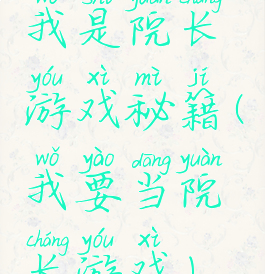 wǒ shì yuàn cháng
我是院长
yóu xì mì jí
游戏秘籍(
wǒ yào dāng yuàn
我要当院
cháng yóu xì
长游戏)